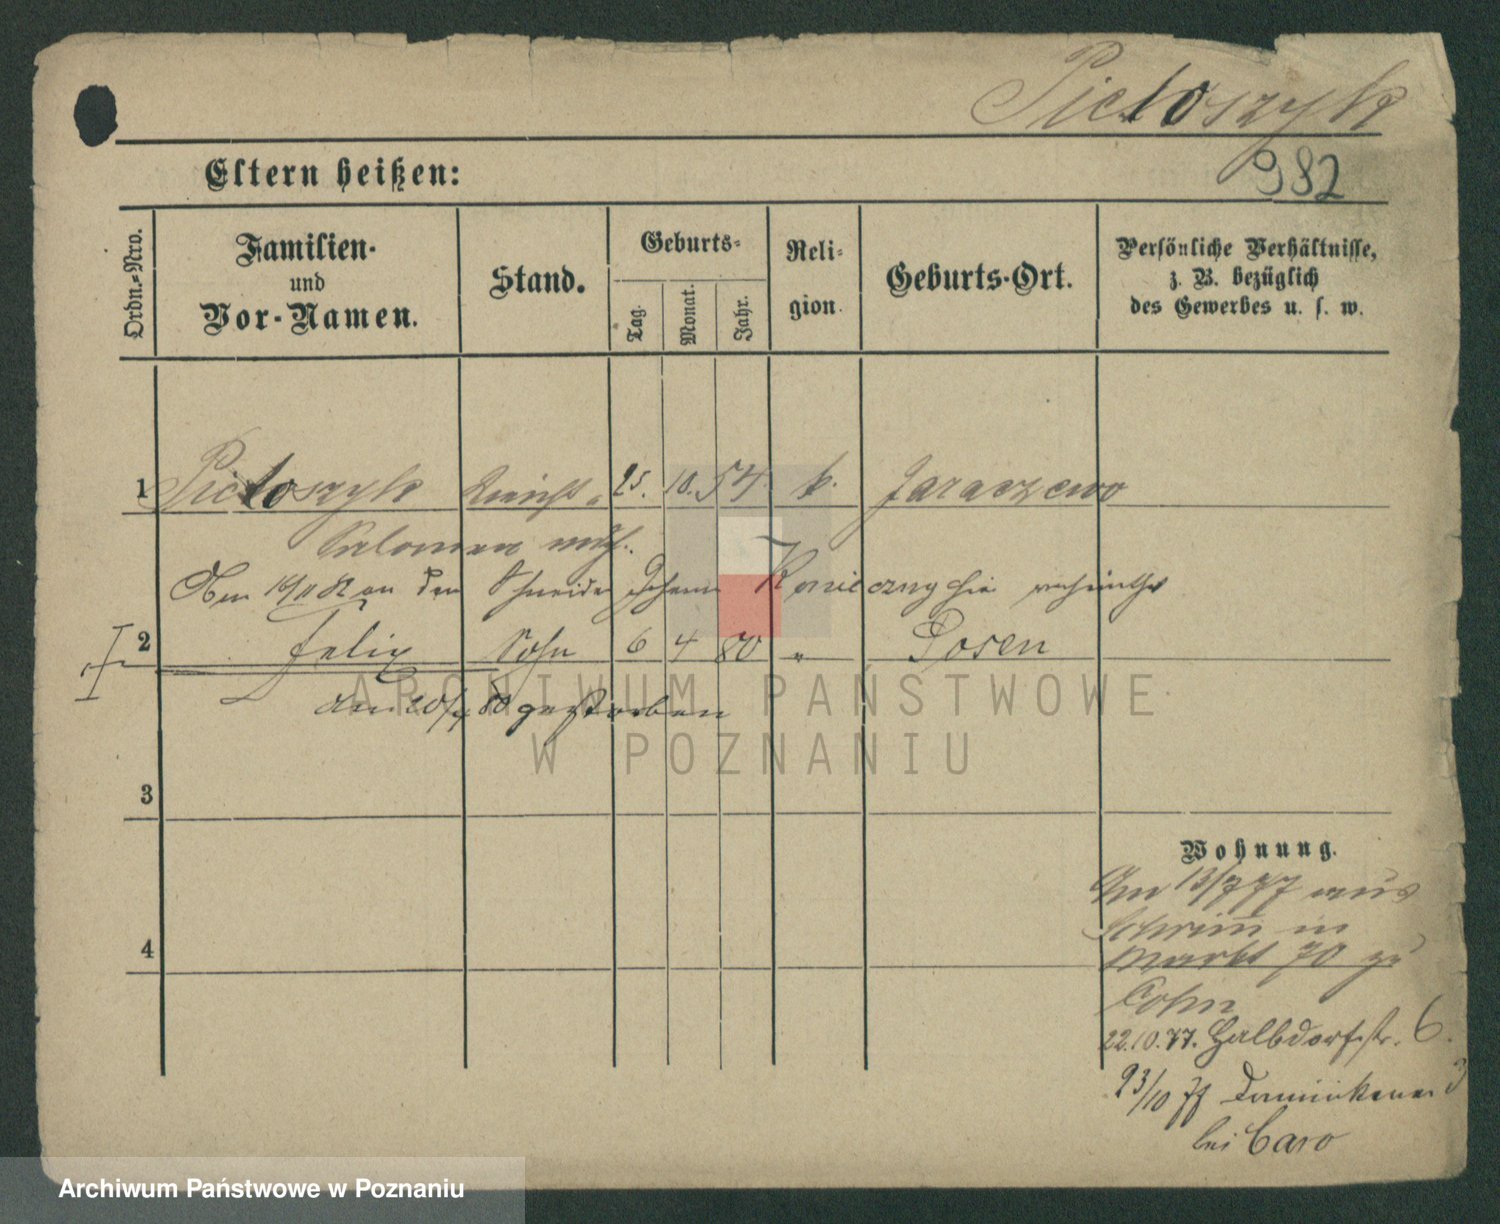 Pietoszyk
982
Eltern heißen:
Ordn.=Nro.
Familien-
und
Vor-Namen.
Stand.
Geburts=
Tag.
Monat.
Jahr.
Reli=
gion.
Geburts-Ort.
Persönliche Verhältnisse,
z. B. bezüglich
des Gewerbes u. s. w.
1 Pietoszyk 25. 10. 54. k. Jaraczewo
Salomea
Am an den Schneider Johann Konieczny hier verheirathet
2 Felix Sohn 6 4 80 " Posen
den 20/4 80 gestorben
3
4
Wohnung.
Am 13/7 77 aus
Schrimm in
Markt 70 zu
Cohn
22.10.77. Halbdorfstr. 6.
23/10 77 Dominikaner 3
bei Caro
ARCHIWUM PAŃSTWOWE
W POZNANIU
Archiwum Państwowe w Poznaniu